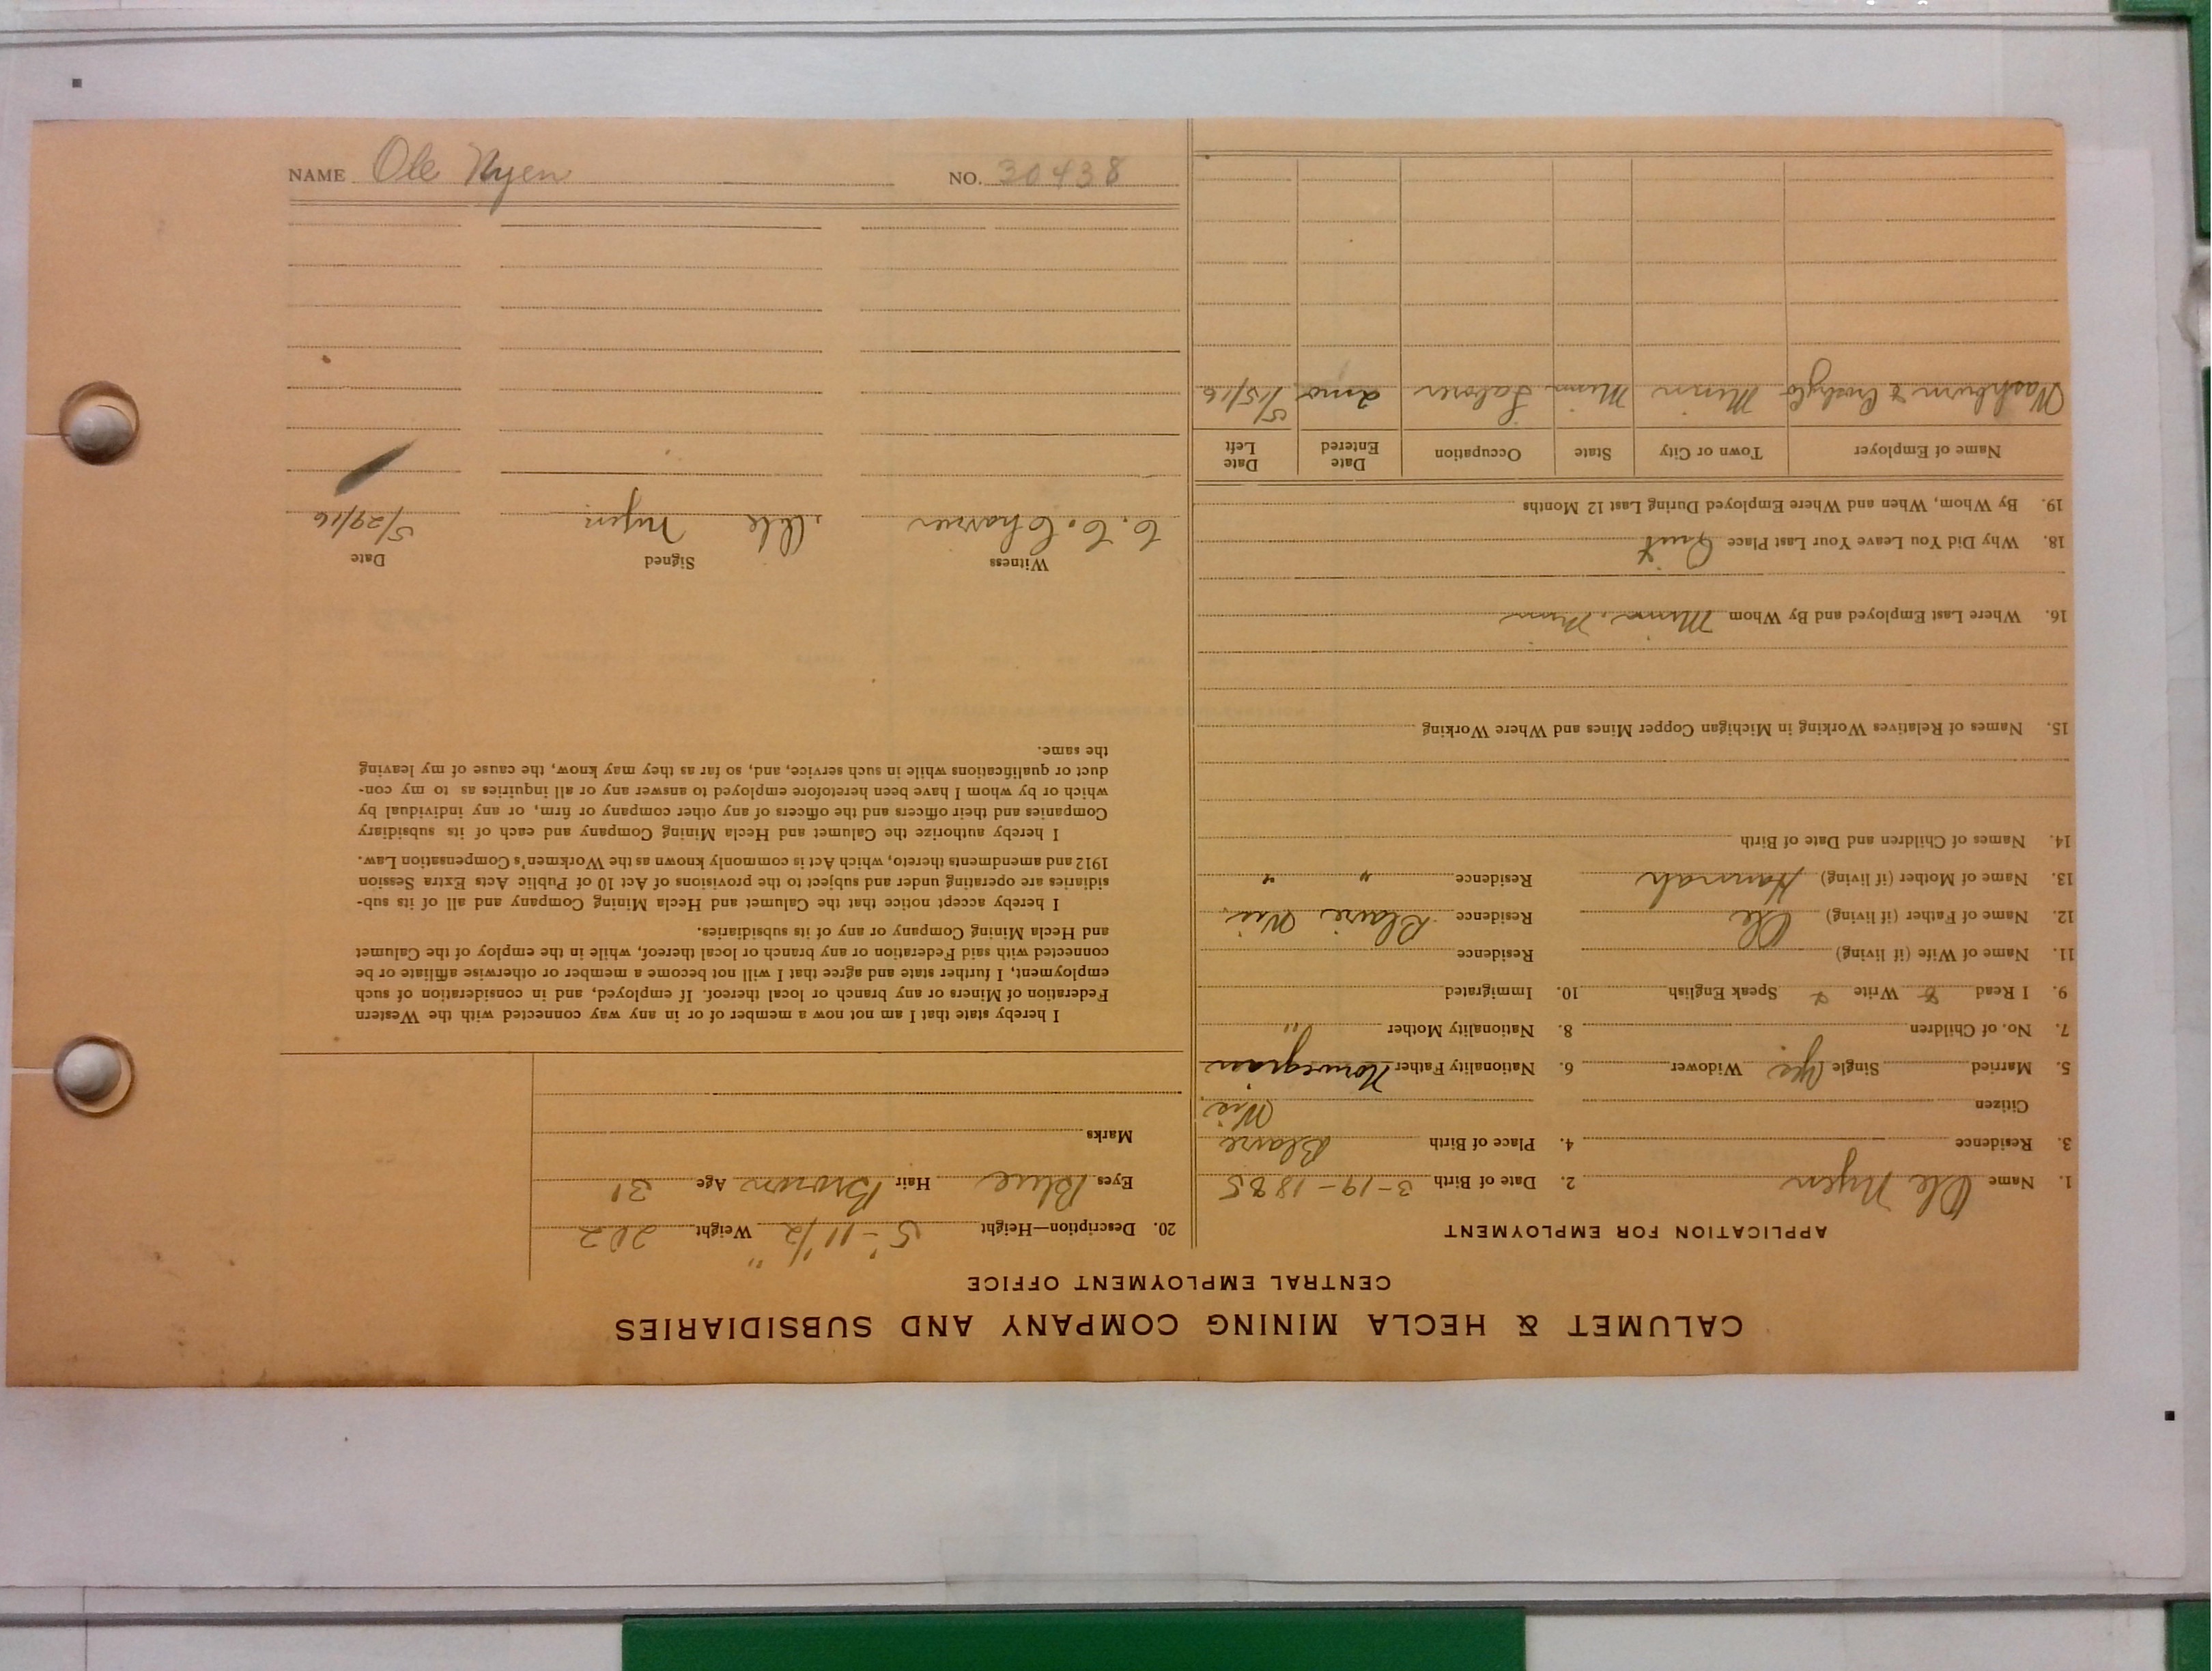 CALUMET & HECLA MINING COMPANY AND SUBSIDIARIES
CENTRAL EMPLOYMENT OFFICE
APPLICATION FOR EMPLOYMENT
1. Name Ole Nyen 2. Date of Birth 3-19-1885
3. Residence 4. Place of Birth Blaire
Citizen Wis
5. Married Single Yes Widower 6. Nationality Father Norwegian
7. No. of Children 8. Nationality Mother "
9. I Read & Write & Speak English 10. Immigrated
11. Name of Wife (if living) Residence
12. Name of Father (if living) Ole Residence Blaire Wis
13. Name of Mother (if living) Hannah Residence " "
14. Names of Children and Date of Birth
15. Names of Relatives Working in Michigan Copper Mines and Where Working
16. Where Last Employed and By Whom Minn, Minn
18. Why Did You Leave Your Last Place Quit
19. By Whom, When and Where Employed During Last 12 Months
Name of Employer Town or City State Occupation Date Entered Date Left
Washburn & Crosby Co Minn Minn Laborer 2 mo 5/15/16
20. Description—Height 5'-11 1/2" Weight 202
Eyes Blue Hair Brown Age 31
Marks
I hereby state that I am not now a member of or in any way connected with the Western
Federation of Miners or any branch or local thereof. If employed, and in consideration of such
employment, I further state and agree that I will not become a member or otherwise affiliate or be
connected with said Federation or any branch or local thereof, while in the employ of the Calumet
and Hecla Mining Company or any of its subsidiaries.
I hereby accept notice that the Calumet and Hecla Mining Company and all of its sub-
sidiaries are operating under and subject to the provisions of Act 10 of Public Acts Extra Session
1912 and amendments thereto, which Act is commonly known as the Workmen's Compensation Law.
I hereby authorize the Calumet and Hecla Mining Company and each of its subsidiary
Companies and their officers and the officers of any other company or firm, or any individual by
which or by whom I have been heretofore employed to answer any or all inquiries as to my con-
duct or qualifications while in such service, and, so far as they may know, the cause of my leaving
the same.
Witness Signed Date
Ole Nyen 5/29/16
NAME Ole Nyen NO. 30438